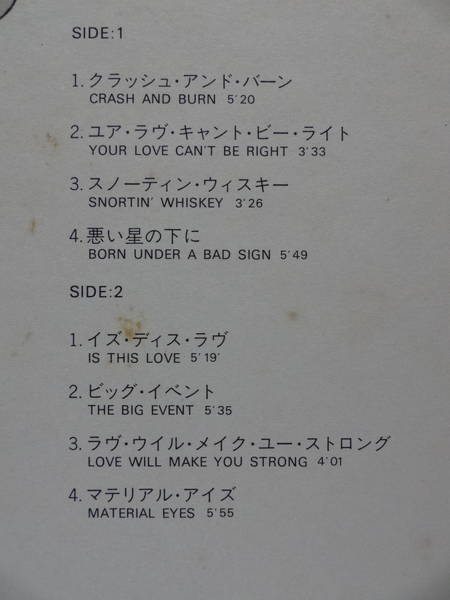 SIDE:1
1. クラッシュ・アンド・バーン
CRASH AND BURN 5'20
2. ユア・ラヴ・キャント・ビー・ライト
YOUR LOVE CAN'T BE RIGHT 3'33
3. スノーティン・ウィスキー
SNORTIN' WHISKEY 3'26
4. 悪い星の下に
BORN UNDER A BAD SIGN 5'49
SIDE:2
1. イズ・ディス・ラヴ
IS THIS LOVE 5'19'
2. ビッグ・イベント
THE BIG EVENT 5'35
3. ラヴ・ウイル・メイク・ユー・ストロング
LOVE WILL MAKE YOU STRONG 4'01
4. マテリアル・アイズ
MATERIAL EYES 5'55